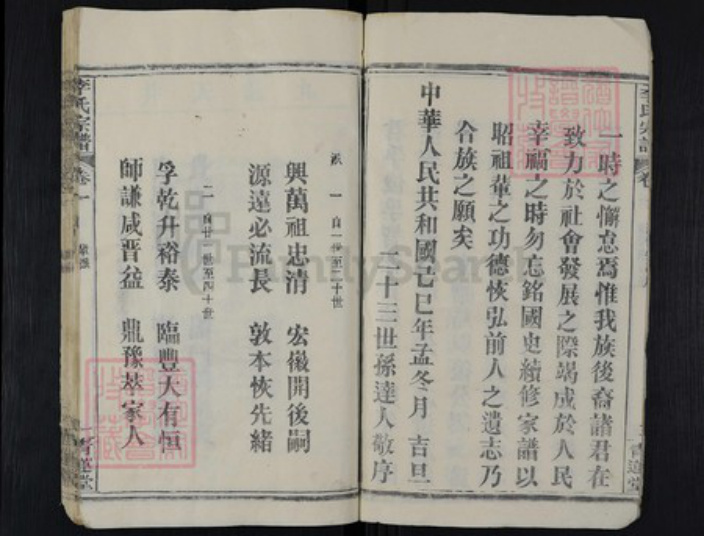 李氏宗譜
一時之懈怠焉惟我族後裔諸君在
致力於社會發展之際竭成於人民
幸福之時勿忘銘國史續修家譜以
昭祖輩之功德恢弘前人之遺志乃
合族之願矣
中華人民共和國己巳年孟冬月 吉旦
二十三世孫達人敬序
派 一 自一世至二十世
興萬祖忠清 宏徽開後嗣
源遠必流長 敦本恢先緒
二 自廿一世至四十世
孚乾升裕泰 臨豐大有恒
師謙咸晋益 鼎豫萃家人
李氏宗譜 卷一
FamilySearch